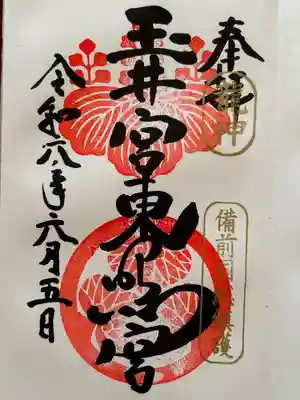 奉拝
龍神
備前国
鎮護
玉井宮東照宮
令和八年六月五日